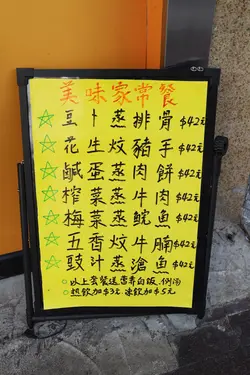 美味家常餐
豆卜蒸排骨 $42元
花生炆豬手 $42元
鹹蛋蒸肉餅 $42元
榨菜蒸牛肉 $42元
梅菜蒸鯇魚 $42元
五香炆牛腩 $42元
豉汁蒸滄魚 $42元
以上套餐送雪耳白飯.例湯
熱飲加$3元.凍飲加$5元